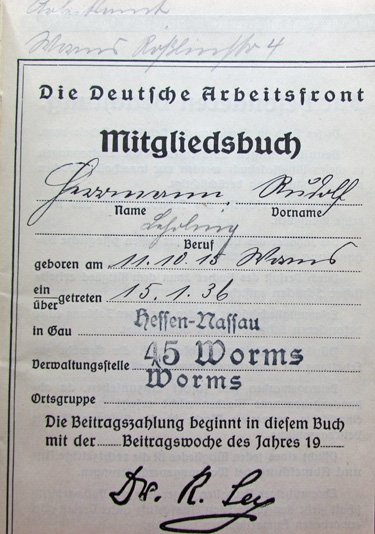 Arbeitsamt
Worms Röhlinstr 4
Die Deutsche Arbeitsfront
Mitgliedsbuch
Herrmann, Rudolf
Name Vorname
Lehrling
Beruf
geboren am 11.10.15 Worms
ein
über getreten 15.1.36
in Gau Hessen-Nassau
Verwaltungsstelle 45 Worms
Worms
Ortsgruppe
Die Beitragszahlung beginnt in diesem Buch
mit der Beitragswoche des Jahres 19
Dr. R. Ley